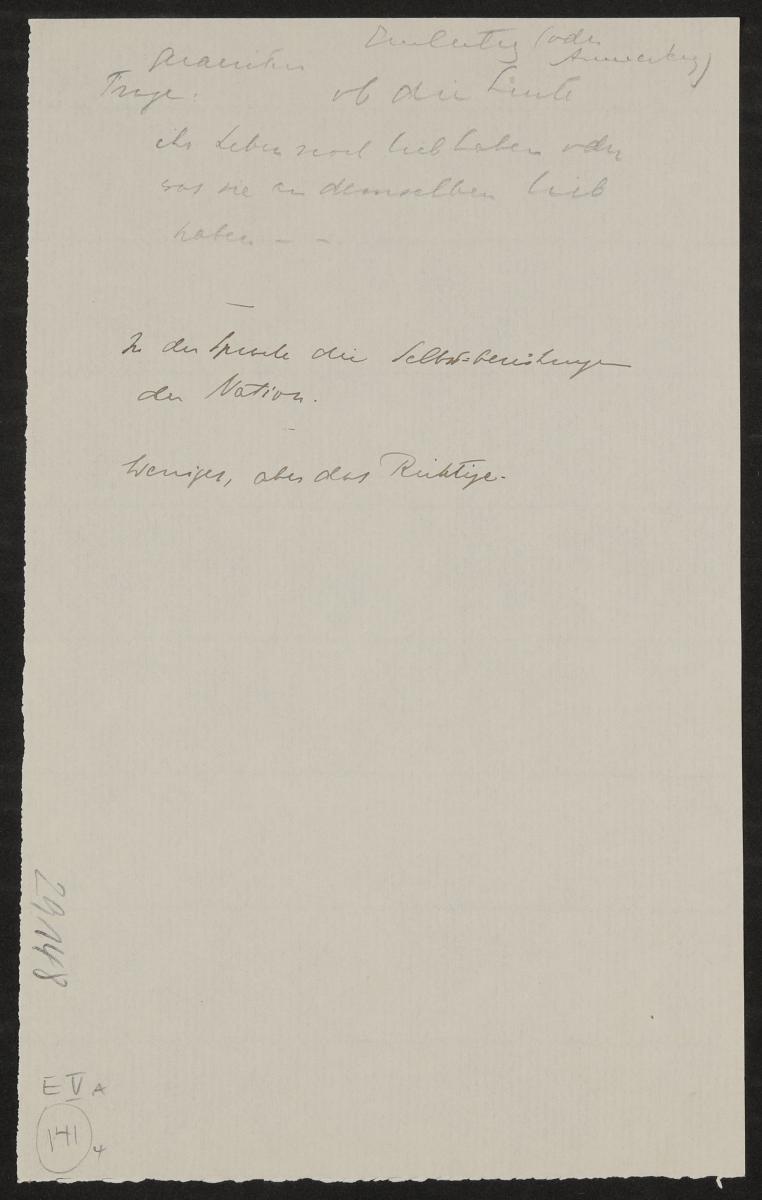 Einleitung (oder
Anmerkung)
Frage: ob die Leute
ihr Leben noch lieb haben oder
was sie an demselben lieb
haben – –
–
In der Sprache die
der Nation.
–
Weniges, aber das Richtige.
29148
E V A
141
4